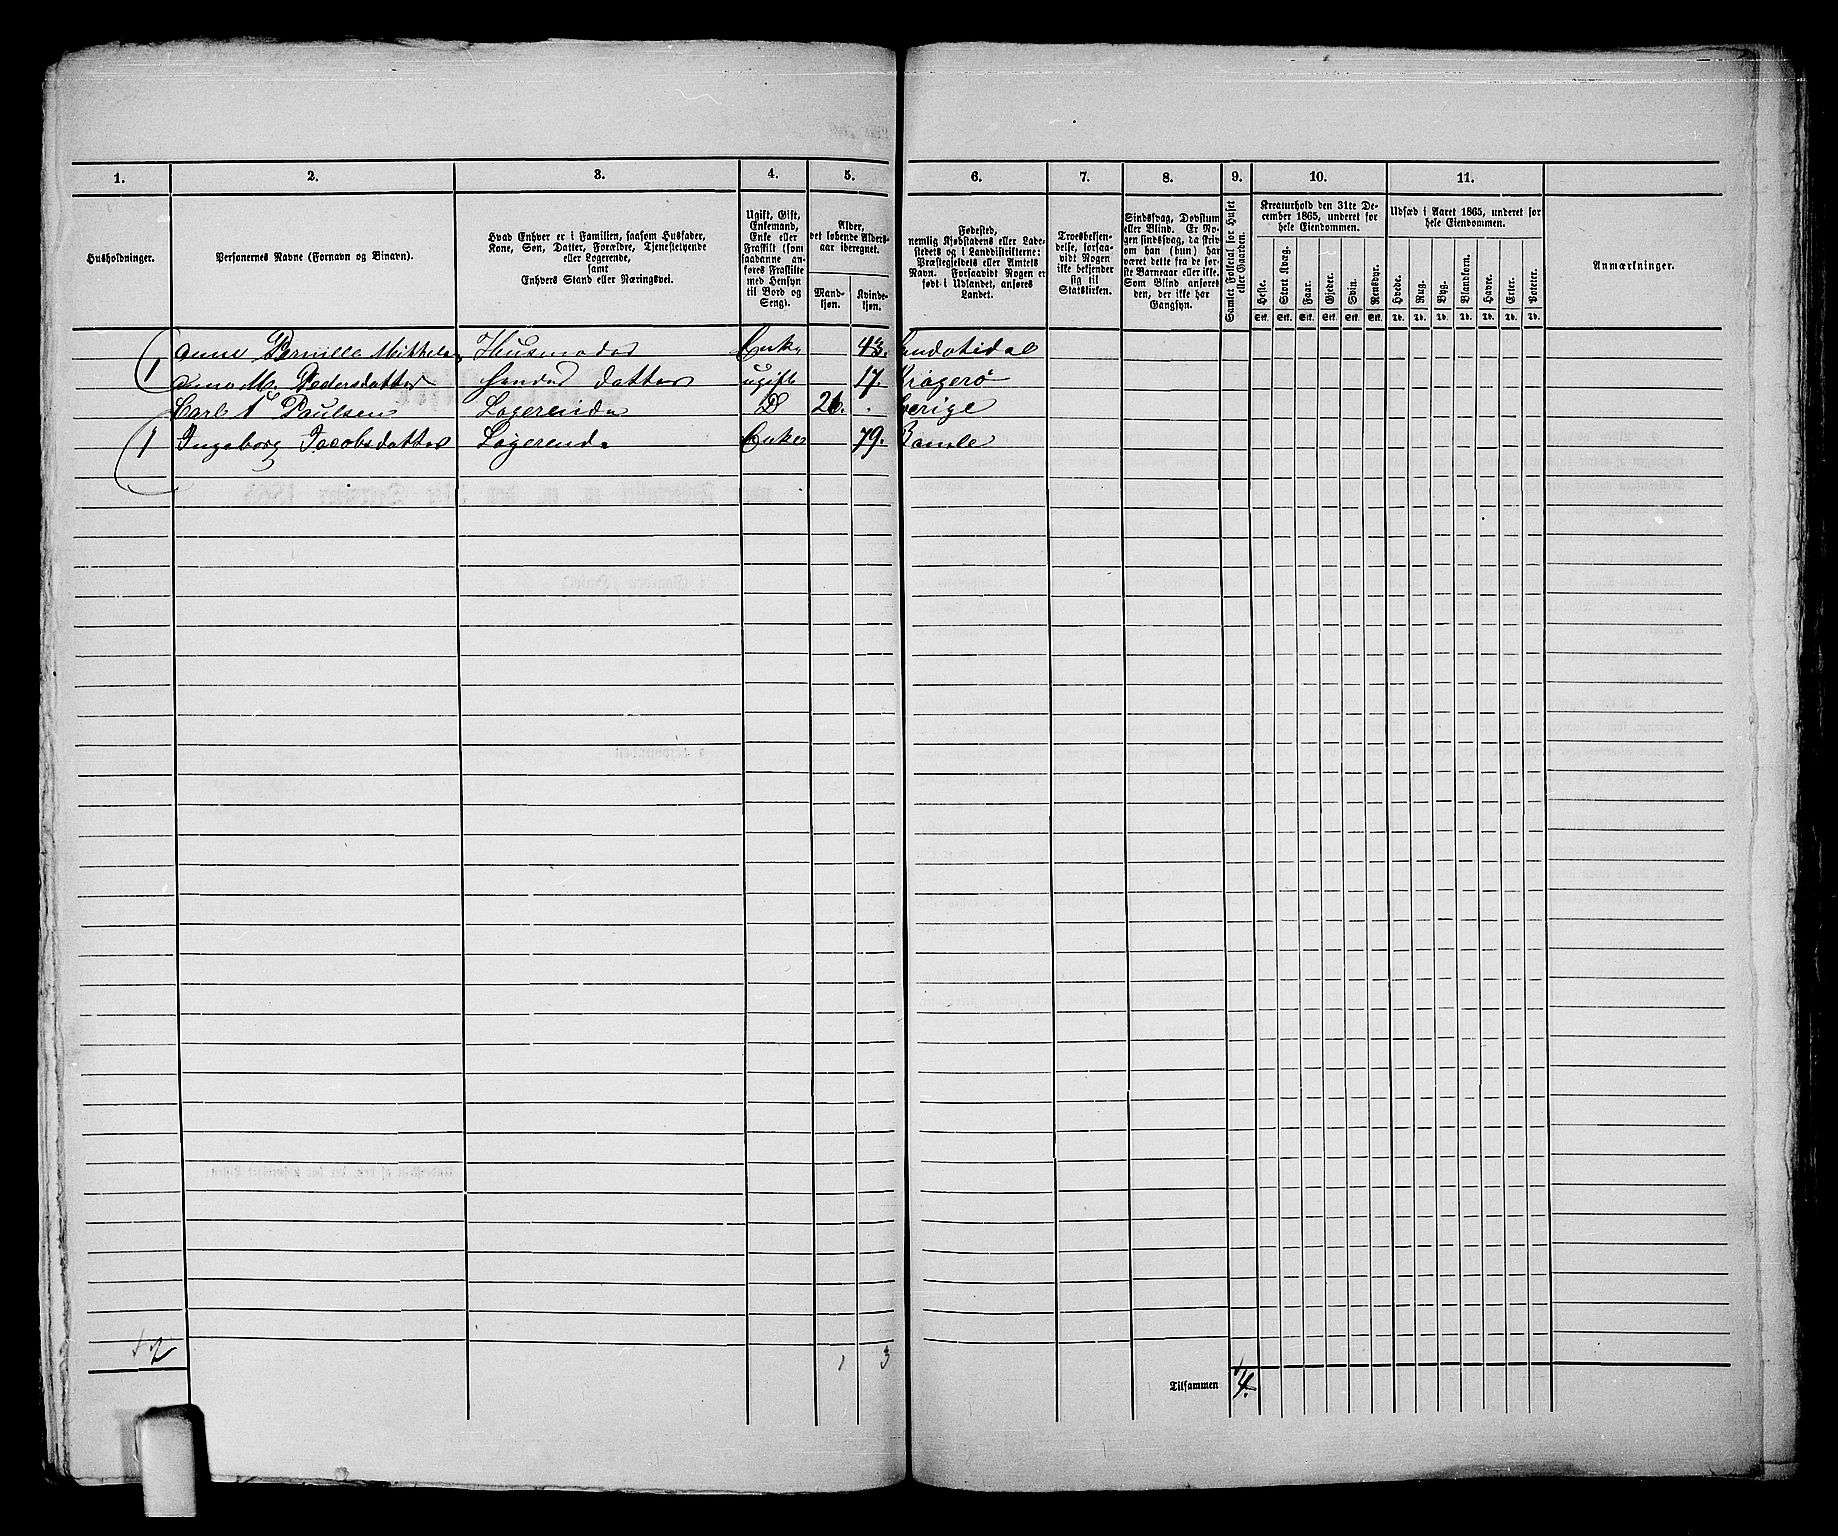 1. 2. 3. 4. 5. 6. 7. 8. 9. 10. 11.
Husholdninger.
Personernes Navne (Fornavn og Binavn).
Hvad Enhver er i Familien, saasom Husfader,
Kone, Søn, Datter, Forældre, Tjenestetyende
eller Logerende,
samt
Enhvers Stand eller Næringsvei.
Ugift, Gift,
Enkemand,
Enke eller
Fraskilt (som
saadanne an-
føres Fraskilte
med Hensyn
til Bord og
Seng).
Alder,
det løbende Alders-
aar iberegnet.
Mand-
kjøn.
Kvinde-
kjøn.
Fødested,
nemlig Kjøbstadens eller Lade-
stedets og i Landdistrikterne:
Præstegjeldets eller Amtets
Navn. Forsaavidt Nogen er
født i Udlandet, anføres
Landet.
Troesbekjen-
delse, forsaa-
vidt Nogen
ikke bekjender
sig til
Statskirken.
Sindssvag, Døvstum
eller Blind. Er No-
gen sindssvag, da skriv
om han (hun) har
været dette fra de før-
ste Barneaar eller ikke.
Som Blind anføres
den, der ikke har
Gangsyn.
Samlet Folketal for Huset
eller Gaarden.
Kreaturhold den 31te De-
cember 1865, underet for
hele Eiendommen.
Heste. Stort Kvæg. Faar. Gjeder. Svin. Rensdyr.
Stk. Stk. Stk. Stk. Stk. Stk.
Udsæd i Aaret 1865, underet for
hele Eiendommen.
Hvede. Rug. Byg. Blandkorn. Havre. Erter. Poteter.
Td. Td. Td. Td. Td. Td. Td.
Anmærkninger.
1 Anne Pernille Mikkels Husmoder Enke 43. Sandøkidal
Anne M. Pedersdatter hendes datter ugift 17. Kragerø
Carl Paulsen Logerende D 26. Serige
1 Ingeborg Jacobsdatter Logerende Enke 79. Bamle
2 1 3
Tilsammen 4.